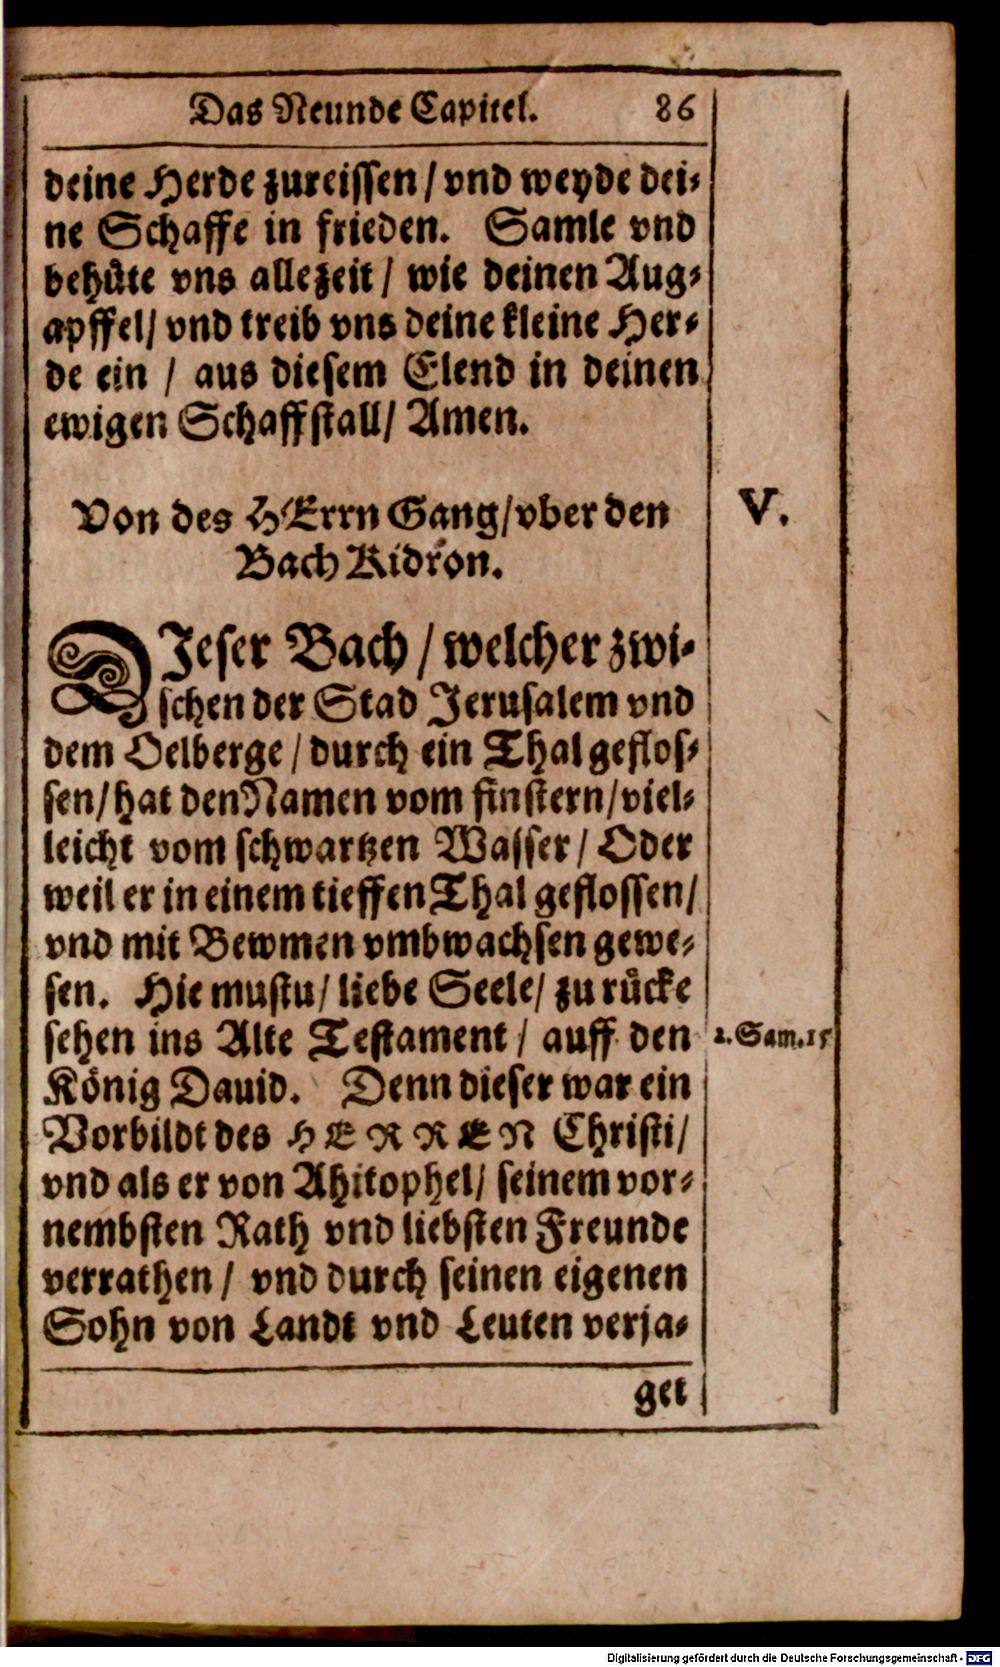 Das Neunde Capitel. 86
deine Herde zureissen / vnd weyde dei-
ne Schaffe in frieden. Samle vnd
behuͤte vns allezeit / wie deinen Aug-
apffel / vnd treib vns deine kleine Her-
de ein / aus diesem Elend in deinen
ewigen Schaffstall / Amen.
Von des HErrn Gang / vber den
Bach Kidron.
V.
DJeser Bach / welcher zwi-
schen der Stad Jerusalem vnd
dem Oelberge / durch ein Thal geflos-
sen / hat den Namen vom finstern / viel-
leicht vom schwartzen Wasser / Oder
weil er in einem tieffen Thal geflossen /
vnd mit Bewmen vmbwachsen gewe-
sen. Hie mustu / liebe Seele / zu ruͤcke
sehen ins Alte Testament / auff den
2. Sam. 15
Koͤnig Dauid. Denn dieser war ein
Vorbildt des HERREN Christi /
vnd als er von Ahitophel / seinem vor-
nembsten Rath vnd liebsten Freunde
verrathen / vnd durch seinen eigenen
Sohn von Landt vnd Leuten verja-
get
Digitalisierung gefördert durch die Deutsche Forschungsgemeinschaft - DFG